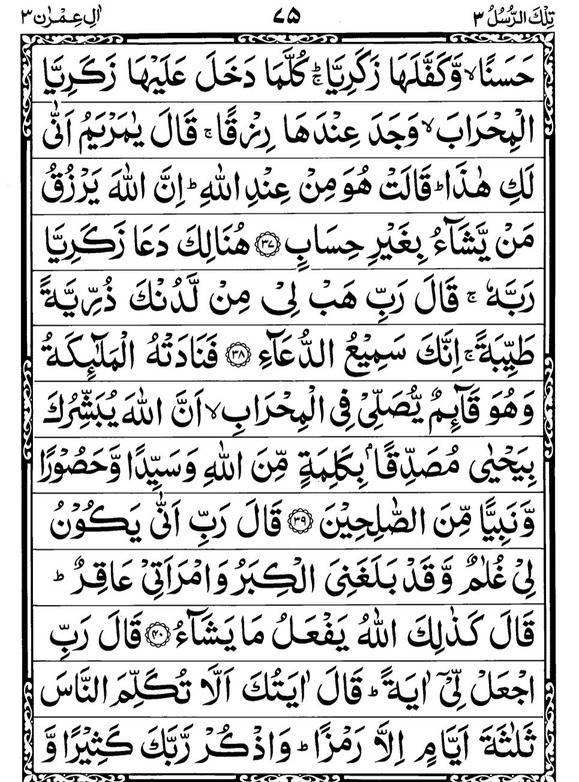 تِلْكَ الرُّسُلُ ٣ ٧٥ اٰلِ عِمْرٰن ٣
حَسَنًا ۙ وَّكَفَّلَهَا زَكَرِيَّا ؕۚ كُلَّمَا دَخَلَ عَلَيْهَا زَكَرِيَّا
الْمِحْرَابَ ۙ وَجَدَ عِنْدَهَا رِزْقًا ۚ قَالَ يٰمَرْيَمُ اَنّٰى
لَكِ هٰذَا ؕ قَالَتْ هُوَ مِنْ عِنْدِ اللّٰهِ ؕ اِنَّ اللّٰهَ يَرْزُقُ
مَنْ يَّشَآءُ بِغَيْرِ حِسَابٍ ﴿٣٧﴾ هُنَالِكَ دَعَا زَكَرِيَّا
رَبَّهٗ ۚ قَالَ رَبِّ هَبْ لِیْ مِنْ لَّدُنْكَ ذُرِّيَّةً
طَيِّبَةً ۚ اِنَّكَ سَمِيْعُ الدُّعَآءِ ﴿٣٨﴾ فَنَادَتْهُ الْمَلٰٓئِكَةُ
وَهُوَ قَآئِمٌ يُّصَلِّیْ فِی الْمِحْرَابِ ۙ اَنَّ اللّٰهَ يُبَشِّرُكَ
بِيَحْيٰى مُصَدِّقًۢا بِكَلِمَةٍ مِّنَ اللّٰهِ وَسَيِّدًا وَّحَصُوْرًا
وَّنَبِيًّا مِّنَ الصّٰلِحِيْنَ ﴿٣٩﴾ قَالَ رَبِّ اَنّٰى يَكُوْنُ
لِیْ غُلٰمٌ وَّقَدْ بَلَغَنِیَ الْكِبَرُ وَامْرَاَتِیْ عَاقِرٌ ؕ
قَالَ كَذٰلِكَ اللّٰهُ يَفْعَلُ مَا يَشَآءُ ﴿٤٠﴾ قَالَ رَبِّ
اجْعَلْ لِّیْۤ اٰيَةً ؕ قَالَ اٰيَتُكَ اَلَّا تُكَلِّمَ النَّاسَ
ثَلٰثَةَ اَيَّامٍ اِلَّا رَمْزًا ؕ وَاذْكُرْ رَّبَّكَ كَثِيْرًا وَّ